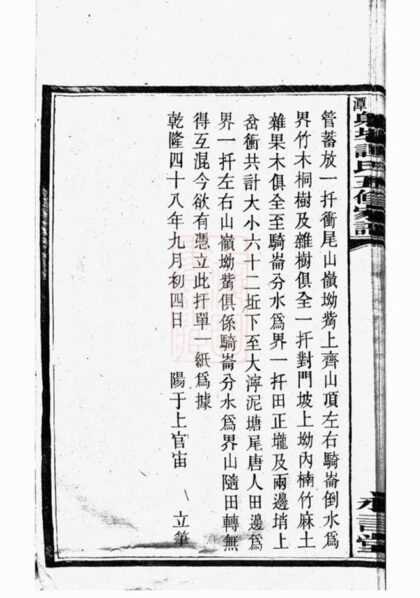 管蓄放一扦衝尾山嶺坳觜上齊山頂左右騎崙倒水爲
界竹木桐樹及雜樹俱全一扦對門坡上坳內楠竹麻土
雜果木俱全至騎崙分水爲界一扦田正壠及兩邊塝上
岔衝共計大小六十二坵下至大濘泥塘尾唐人田邊爲
界一扦左右山嶺坳觜俱係騎崙分水爲界山隨田轉無
得互混今欲有憑立此扦單一紙爲據
乾隆四十八年九月初四日 陽于上官宙 立筆
氏五修家譜